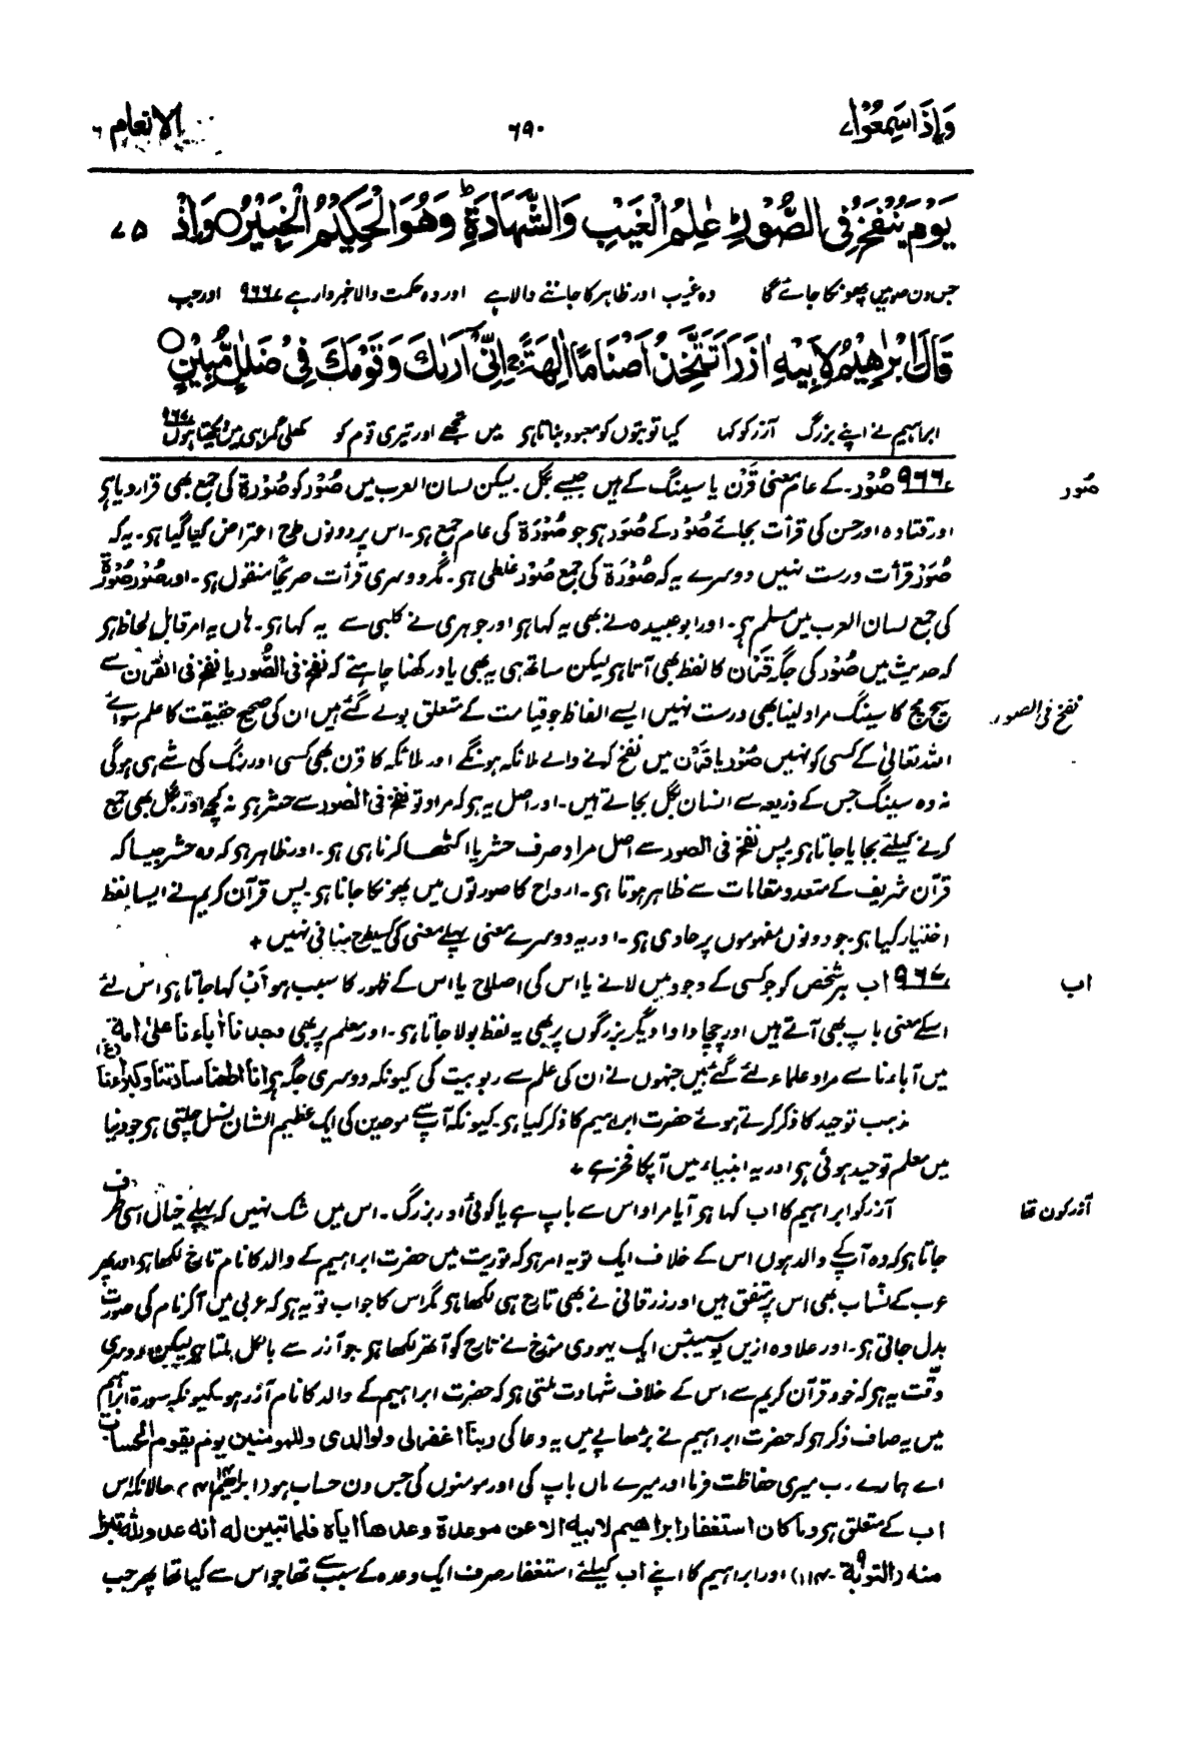 وَاِذَا سَمِعُوْا ۷
۶۹۰
الانعام ۶
يَوْمَ يُنْفَخُ فِي الصُّوْرِ ؕ عٰلِمُ الْغَيْبِ وَالشَّهَادَةِ ؕ وَهُوَ الْحَكِيْمُ الْخَبِيْرُ ○ وَاِذْ ۷۵
جس دن صور میں پھونکا جائے گا وہ غیب اور ظاہر کا جاننے والا ہے اور وہ حکمت والا خبردار ہے ۹۶۶ اور جب
قَالَ اِبْرٰهِيْمُ لِاَبِيْهِ اٰزَرَ اَتَتَّخِذُ اَصْنَامًا اٰلِهَةً ۚ اِنِّيْٓ اَرٰىكَ وَقَوْمَكَ فِيْ ضَلٰلٍ مُّبِيْنٍ ○
ابراہیم نے اپنے بزرگ آزر کو کہا کیا تو بتوں کو معبود بناتا ہو میں تجھے اور تیری قوم کو کھلی گمراہی میں دیکھتا ہوں ۹۶۷
صُور
۹۶۶ صُوْر۔ کے عام معنی قَرْن یا سینگ کے ہیں جیسے بگل۔ لیکن لسان العرب میں صُوْر کو صُوْرَة کی جمع بھی قرار دیا ہو
اور قتادہ اور حسن کی قرأت بجائے صُوْر کے صُوَر ہو جو صُوْرَة کی عام جمع ہو۔ اس پر دونوں طرح اعتراض کیا گیا ہو۔ یہ کہ
صُوَر قرأت درست نہیں دوسرے یہ کہ صُوْرَة کی جمع صُوْر غلطی ہو۔ مگر دوسری قرأت صریحاً منقول ہو۔ اور صُوْر صُوْرَة
کی جمع لسان العرب میں مسلم ہو۔ اور ابوعبیدہ نے بھی یہ کہا ہو اور جوہری نے کلبی سے یہ کہا ہو۔ ہاں یہ امر قابل لحاظ ہو
کہ حدیث میں صُوْر کی جگہ قَرْن کا لفظ بھی آتا ہو لیکن ساتھ ہی یہ بھی یاد رکھنا چاہئے کہ نفخ فی الصُّور یا نفخ فی القرن سے
نفخ فی الصور
سچ مچ کا سینگ مراد لینا بھی درست نہیں ایسے الفاظ جو قیامت کے متعلق بولے گئے ہیں ان کی صحیح حقیقت کا علم سوائے
اللہ تعالیٰ کے کسی کو نہیں صُوْر یا قَرْن میں نفخ کرنے والے ملائکہ ہونگے اور ملائکہ کا قرن بھی کسی اور رنگ کی شے ہی ہوگی
نہ وہ سینگ جس کے ذریعہ سے انسان بگل بجاتے ہیں۔ اور اصل یہ ہو کہ مراد تو نفخ فی الصُور سے حشر ہو نہ کچھ اور بگل بھی جمع
کرنے کیلئے بجایا جاتا ہو پس نفخ فی الصور سے اصل مراد صرف حشر یا اکٹھا کرنا ہی ہو۔ اور ظاہر ہو کہ وہ حشر جیسا کہ
قرآن شریف کے متعدد مقامات سے ظاہر ہوتا ہو۔ ارواح کا صورتوں میں پھونکا جانا ہو۔ پس قرآن کریم نے ایسا لفظ
اختیار کیا ہو۔ جو دونوں مفہوموں پر حاوی ہو۔ اور یہ دوسرے معنی پہلے معنی کی کسی طرح منافی نہیں +
اب
۹۶۷ اب ہر شخص کو جو کسی کے وجود میں لانے یا اس کی اصلاح یا اس کے ظہور کا سبب ہو اَبٌ کہا جاتا ہو اس لئے
اسکے معنی باپ بھی آتے ہیں اور چچا دادا و دیگر بزرگوں پر بھی یہ لفظ بولا جاتا ہو۔ اور معلم پر بھی وجدنا اٰباءنا علیٰ امة
میں آباءنا سے مراد علماء لئے گئے ہیں جنہوں نے ان کی علم سے ربوبیت کی کیونکہ دوسری جگہ ہو انا اطعنا سادتنا وکبراءنا (غ)
مذہب توحید کا ذکر کرتے ہوئے حضرت ابراہیم کا ذکر کیا ہو۔ کیونکہ آپ سے موحدین کی ایک عظیم الشان نسل چلتی ہو جو دنیا
میں معلم توحید ہوئی ہو اور یہ انبیاء میں آپکا فخر ہے +
آزر کون تھا
آزر کو ابراہیم کا اب کہا ہو آیا مراد اس سے باپ ہے یا کوئی اور بزرگ۔ اس میں شک نہیں کہ پہلے خیال اسی طرف
جاتا ہو کہ وہ آپکے والد ہوں اس کے خلاف ایک تو یہ امر ہو کہ توریت میں حضرت ابراہیم کے والد کا نام تارخ لکھا ہو اور پھر
عرب کے نساب بھی اس پر متفق ہیں اور زرقانی نے بھی تارخ ہی لکھا ہو مگر اس کا جواب تو یہ ہو کہ عربی میں آکر نام کی صورت
بدل جاتی ہو۔ اور علاوہ ازیں یوسیبئس ایک یہودی مؤرخ نے تارخ کو آتھر لکھا ہو جو آزر سے بالکل ملتا ہو لیکن دوسری
دقت یہ ہو کہ خود قرآن کریم سے اس کے خلاف شہادت ملتی ہو کہ حضرت ابراہیم کے والد کا نام آزر ہو۔ کیونکہ سورۃ ابراہیم
میں یہ صاف ذکر ہو کہ حضرت ابراہیم نے بڑھاپے میں یہ دعا کی ربنا اغفرلی ولوالدی وللمومنین یوم یقوم الحساب
اے ہمارے رب میری حفاظت فرما اور میرے ماں باپ کی اور مومنوں کی جس دن حساب ہو (ابراہیم ۱۴۔۴۱) حالانکہ اس
اب کے متعلق ہو وما کان استغفار ابراھیم لابیه الا عن موعدة وعدھا ایاه فلما تبین له انه عدو لله تبرأ
منه (التوبة ۹۔۱۱۴) اور ابراہیم کا اپنے اب کیلئے استغفار صرف ایک وعدہ کے سبب سے تھا جو اس سے کیا تھا پھر جب